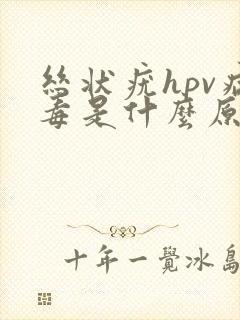 絲狀疣hpv病
毒是什麼原
十年一覺冰島